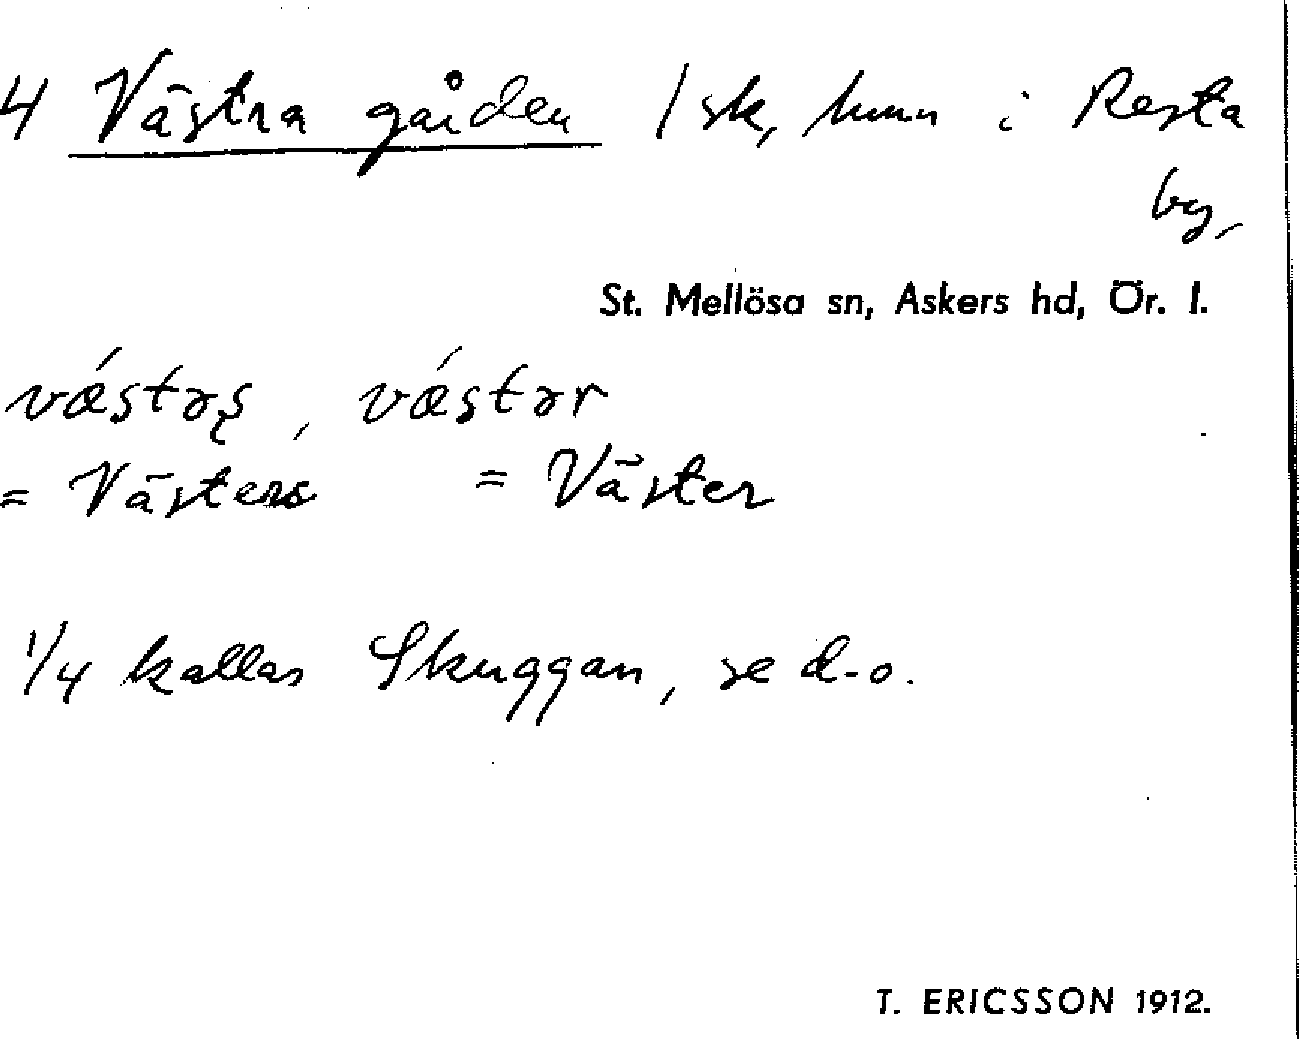 4 Västra gården 1 sk, hmn i Resta
by,
St. Mellösa sn, Askers hd, Ör. l.
vǽstəʂ, vǽstər
= Västers = Väster
1/4 kallas Skuggan, se d-o.
T. ERICSSON 1912.